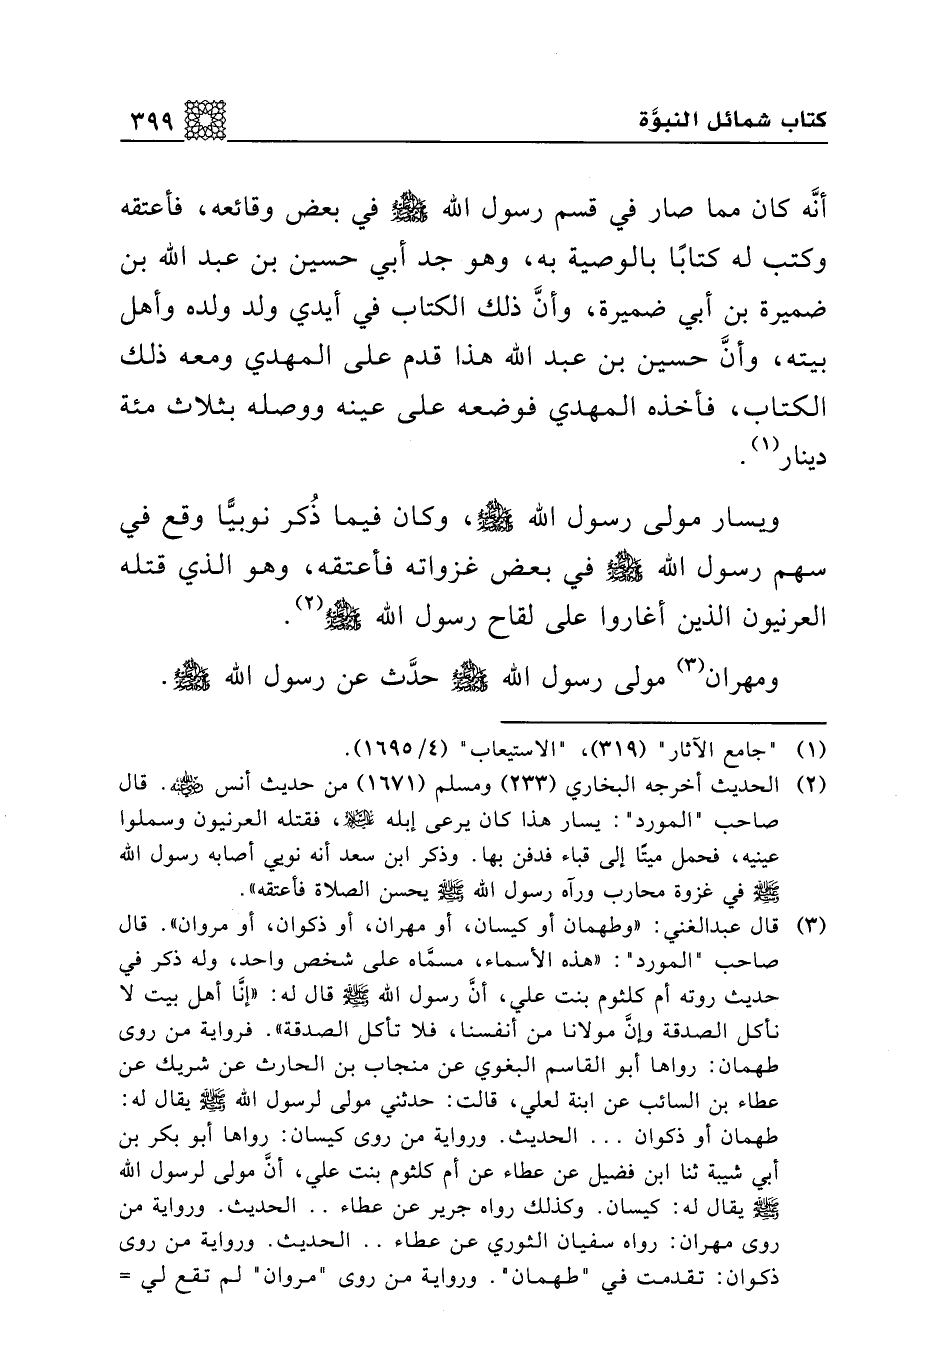 كتاب شمائل النبوَّة ٣٩٩
أنَّه كان مما صار في قسم رسول الله ﷺ في بعض وقائعه، فأعتقه
وكتب له كتابًا بالوصية به، وهو جد أبي حسين بن عبد الله بن
ضميرة بن أبي ضميرة، وأنَّ ذلك الكتاب في أيدي ولد ولده وأهل
بيته، وأنَّ حسين بن عبد الله هذا قدم على المهدي ومعه ذلك
الكتاب، فأخذه المهدي فوضعه على عينه ووصله بثلاث مئة
دينار(١).
ويسار مولى رسول الله ﷺ، وكان فيما ذُكر نوبيًّا وقع في
سهم رسول الله ﷺ في بعض غزواته فأعتقه، وهو الذي قتله
العرنيون الذين أغاروا على لقاح رسول الله ﷺ(٢).
ومهران(٣) مولى رسول الله ﷺ حدَّث عن رسول الله ﷺ.
(١) "جامع الآثار" (٣١٩)، "الاستيعاب" (٤/ ١٦٩٥).
(٢) الحديث أخرجه البخاري (٢٣٣) ومسلم (١٦٧١) من حديث أنس رضي الله عنه. قال
صاحب "المورد": يسار هذا كان يرعى إبله ﷺ، فقتله العرنيون وسملوا
عينيه، فحمل ميتًا إلى قباء فدفن بها. وذكر ابن سعد أنه نوبي أصابه رسول الله
ﷺ في غزوة محارب ورآه رسول الله ﷺ يحسن الصلاة فأعتقه».
(٣) قال عبدالغني: «وطهمان أو كيسان، أو مهران، أو ذكوان، أو مروان». قال
صاحب "المورد": «هذه الأسماء، مسمَّاه على شخص واحد، وله ذكر في
حديث روته أم كلثوم بنت علي، أنَّ رسول الله ﷺ قال له: «إنَّا أهل بيت لا
نأكل الصدقة وإنَّ مولانا من أنفسنا، فلا تأكل الصدقة». فرواية من روى
طهمان: رواها أبو القاسم البغوي عن منجاب بن الحارث عن شريك عن
عطاء بن السائب عن ابنة لعلي، قالت: حدثني مولى لرسول الله ﷺ يقال له:
طهمان أو ذكوان ... الحديث. ورواية من روى كيسان: رواها أبو بكر بن
أبي شيبة ثنا ابن فضيل عن عطاء عن أم كلثوم بنت علي، أنَّ مولى لرسول الله
ﷺ يقال له: كيسان. وكذلك رواه جرير عن عطاء .. الحديث. ورواية من
روى مهران: رواه سفيان الثوري عن عطاء .. الحديث. ورواية من روى
ذكوان: تقدمت في "طهمان". ورواية من روى "مروان" لم تقع لي =